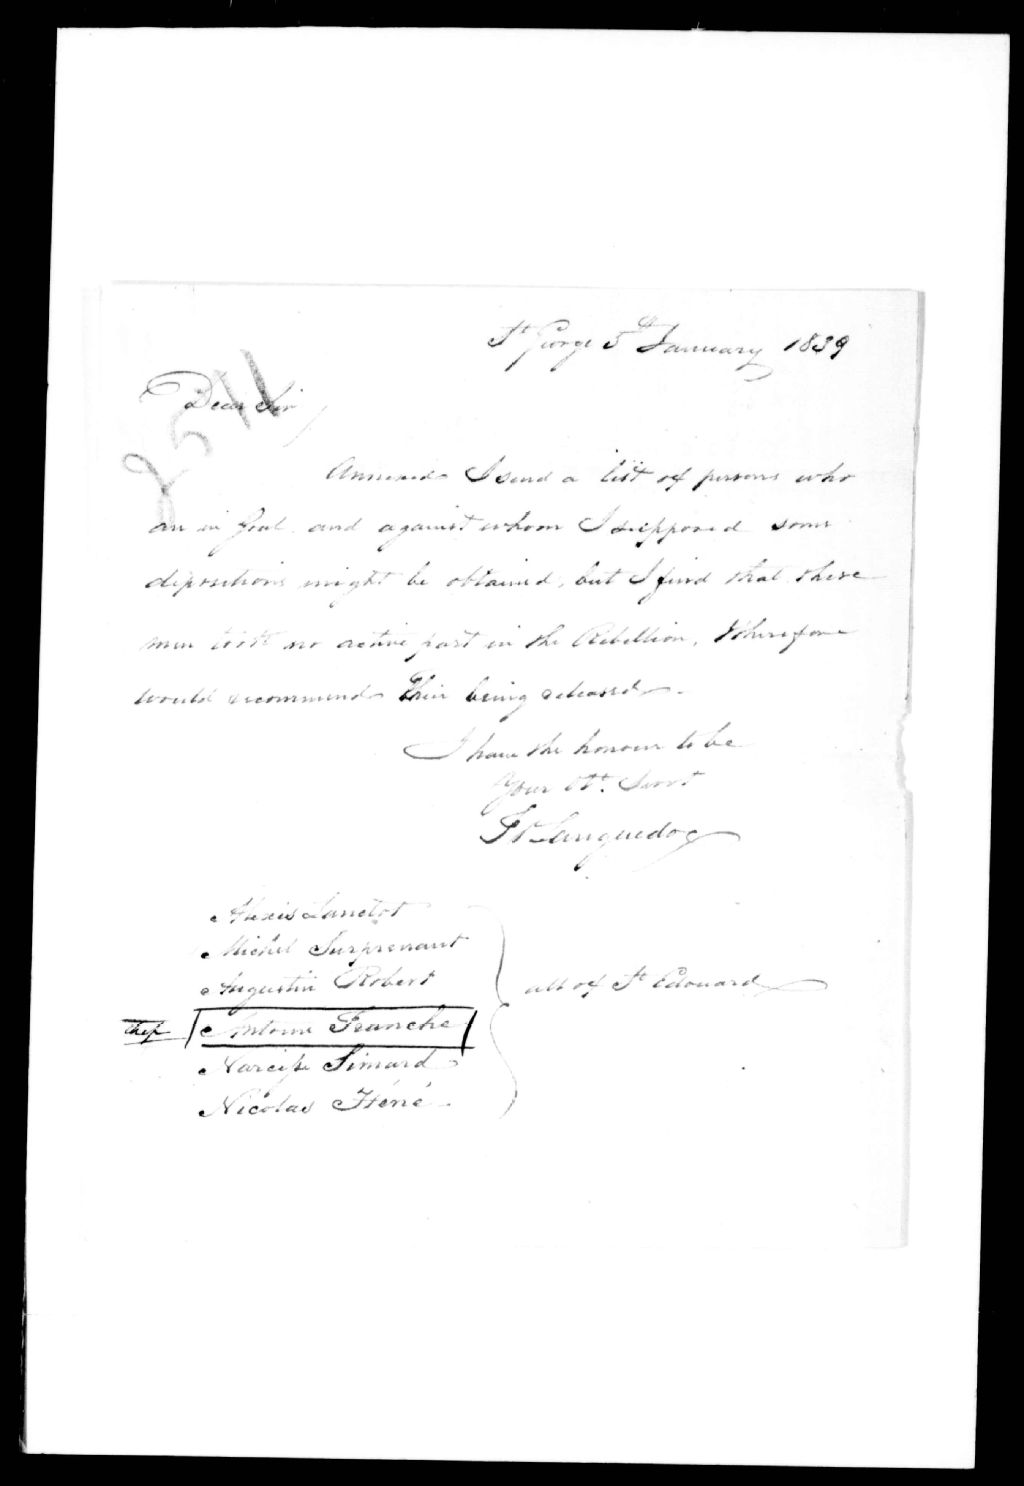 St George 5th January 1839
Dear Sir,
2511
Annexed I send a list of persons who
are in Goal and against whom I supposed some
depositions might be obtained, but I find that these
men took no active part in the Rebellion, & therefore
would recommend their being released.
I have the honour to be
Your Obt. Servt
F Languedoc
Alexis Lanctot
Michel Surprenant
Augustin Robert
all of St Edouard
Antoine Franche
Narcisse Simard
Nicolas Héné